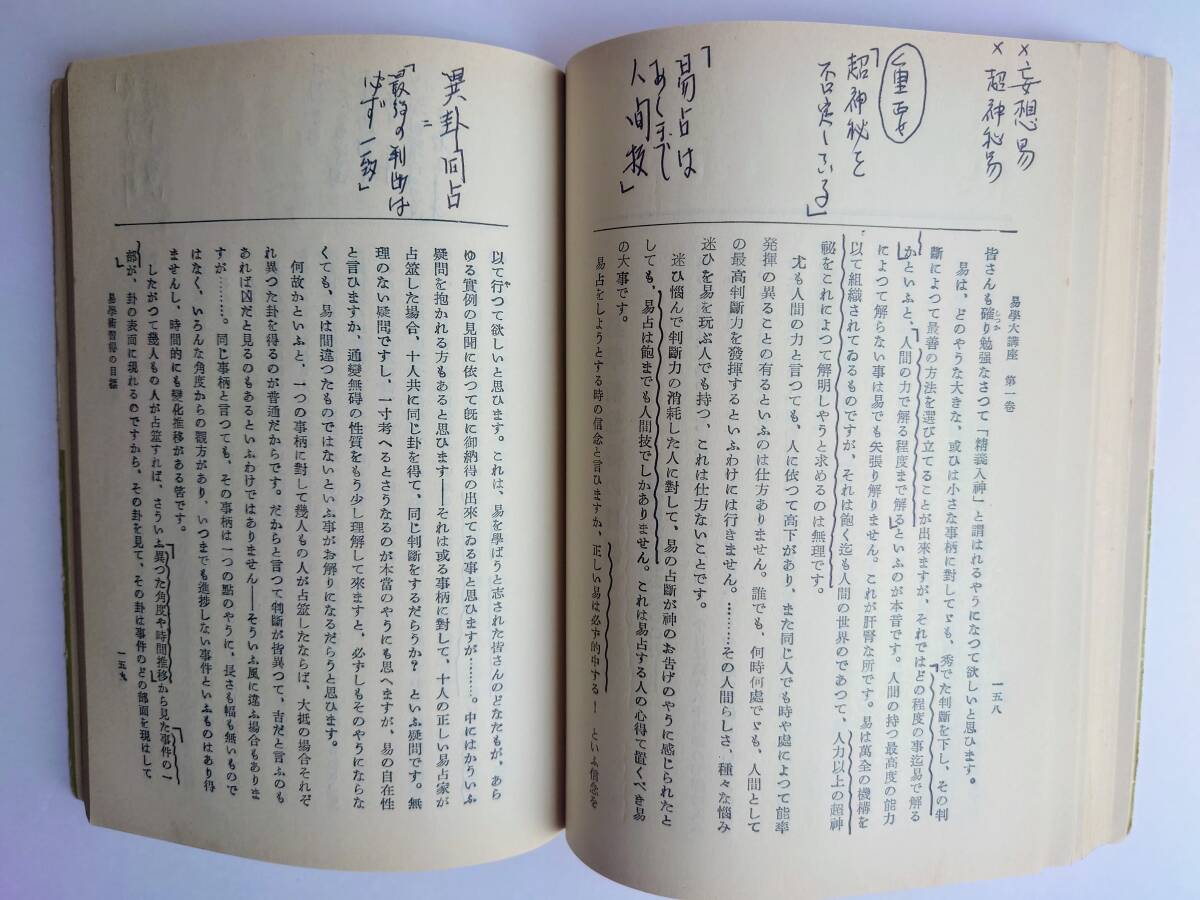 ×妄想易
×超神秘易
重要
「超神秘を
否定している」
「易占は
あくまで
人間技」
易學大講座　第一卷
一五八
皆さんも確り勉强なさつて「精義入神」と謂はれるやうになつて欲しいと思ひます。
しつか
易は、どのやうな大きな、或ひは小さな事柄に対してゞも、秀でた判斷を下し、その判
斷によつて最善の方法を選び立てることが出來ますが、それではどの程度の事迄易で解る
かといふと、「人間の力で解る程度まで解る」といふのが本音です。人間の持つ最高度の能力
によつて解らない事は易でも矢張り解りません。これが肝腎な所です。易は萬全の機構を
以て組織されてゐるものですが、それは飽く迄も人間の世界のであつて、人力以上の超神
祕をこれによつて解明しやうと求めるのは無理です。
尤も人間の力と言つても、人に依つて高下があり、また同じ人でも時や處によつて能率
發揮の異ることの有るといふのは仕方ありません。誰でも、何時何處でゞも、人間として
の最高判斷力を發揮するといふわけには行きません。………その人間らしさ、種々な惱み
迷ひを易を玩ぶ人でも持つ、これは仕方ないことです。
迷ひ惱んで判斷力の消耗した人に對して、易の占斷が神のお告げのやうに感じられたと
しても、易占は飽までも人間技でしかありません。これは易占する人の心得て置くべき易
の大事です。
易占をしようとする時の信念と言ひますか、正しい易は必ず的中する！　といふ信念を
異卦同占
＝
「最終の判断は
必ず一致」
以て行つて欲しいと思ひます。これは、易を學ばうと志された皆さんのどなたもが、あら
や
ゆる實例の見聞に依つて既に御納得の出來てゐる事と思ひますが………。中にはかういふ
疑問を抱かれる方もあると思ひます――それは或る事柄に對して、十人の正しい易占家が
占筮した場合、十人共に同じ卦を得て、同じ判斷をするだらうか？　といふ疑問です。無
理のない疑問ですし、一寸考へるとさうなるのが本當のやうにも思へますが、易の自在性
と言ひますか、通變無碍の性質をもう少し理解して來ますと、必ずしもそのやうにならな
くても、易は間違つたものではないといふ事がお解りになるだらうと思ひます。
何故かといふと、一つの事柄に對して幾人もの人が占筮したならば、大抵の場合それぞ
れ異つた卦を得るのが普通だからです。だからと言つて判斷が皆異つて、吉だと言ふのも
あれば凶だと見るのもあるといふわけではありません――そういふ風に違ふ場合もありま
すが………。同じ事柄と言つても、その事柄は一つの點のやうに、長さも幅も無いもので
はなく、いろんな角度からの觀方があり、いつまでも進捗しない事件といふものはあり得
ませんし、時間的にも變化推移がある筈です。
したがつて幾人もの人が占筮すれば、さういふ「異つた角度や時間推移」から見た「事件の一
部」が、卦の表面に現れるのですから、その卦を見て、その卦は事件のどの部面を現はして
易學術習得の目標
一五九